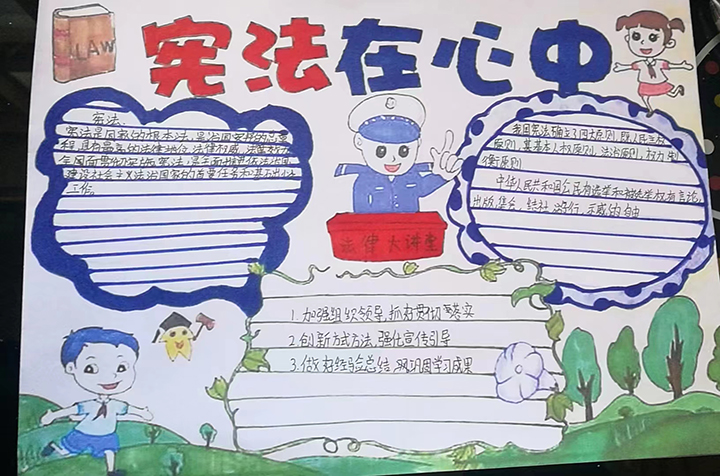 LAW
宪法在心中
宪法
宪法是国家的根本法,是治国安邦的总章
程,具有最高的法律地位、法律权威、法律效力
全面贯彻实施宪法,是全面推进依法治国
建设社会主义法治国家的首要任务和基础性
工作。
我国宪法确立了四大原则,既人民主权
原则,其基本人权原则,法治原则,权力制
衡原则
中华人民共和国公民有选举和被选举权有言论,
出版,集会,结社,游行,示威的自由
法律大讲堂
1.加强组织领导,抓好贯彻落实
2.创新方式方法,强化宣传引导
3.做好经验总结,巩固学习成果